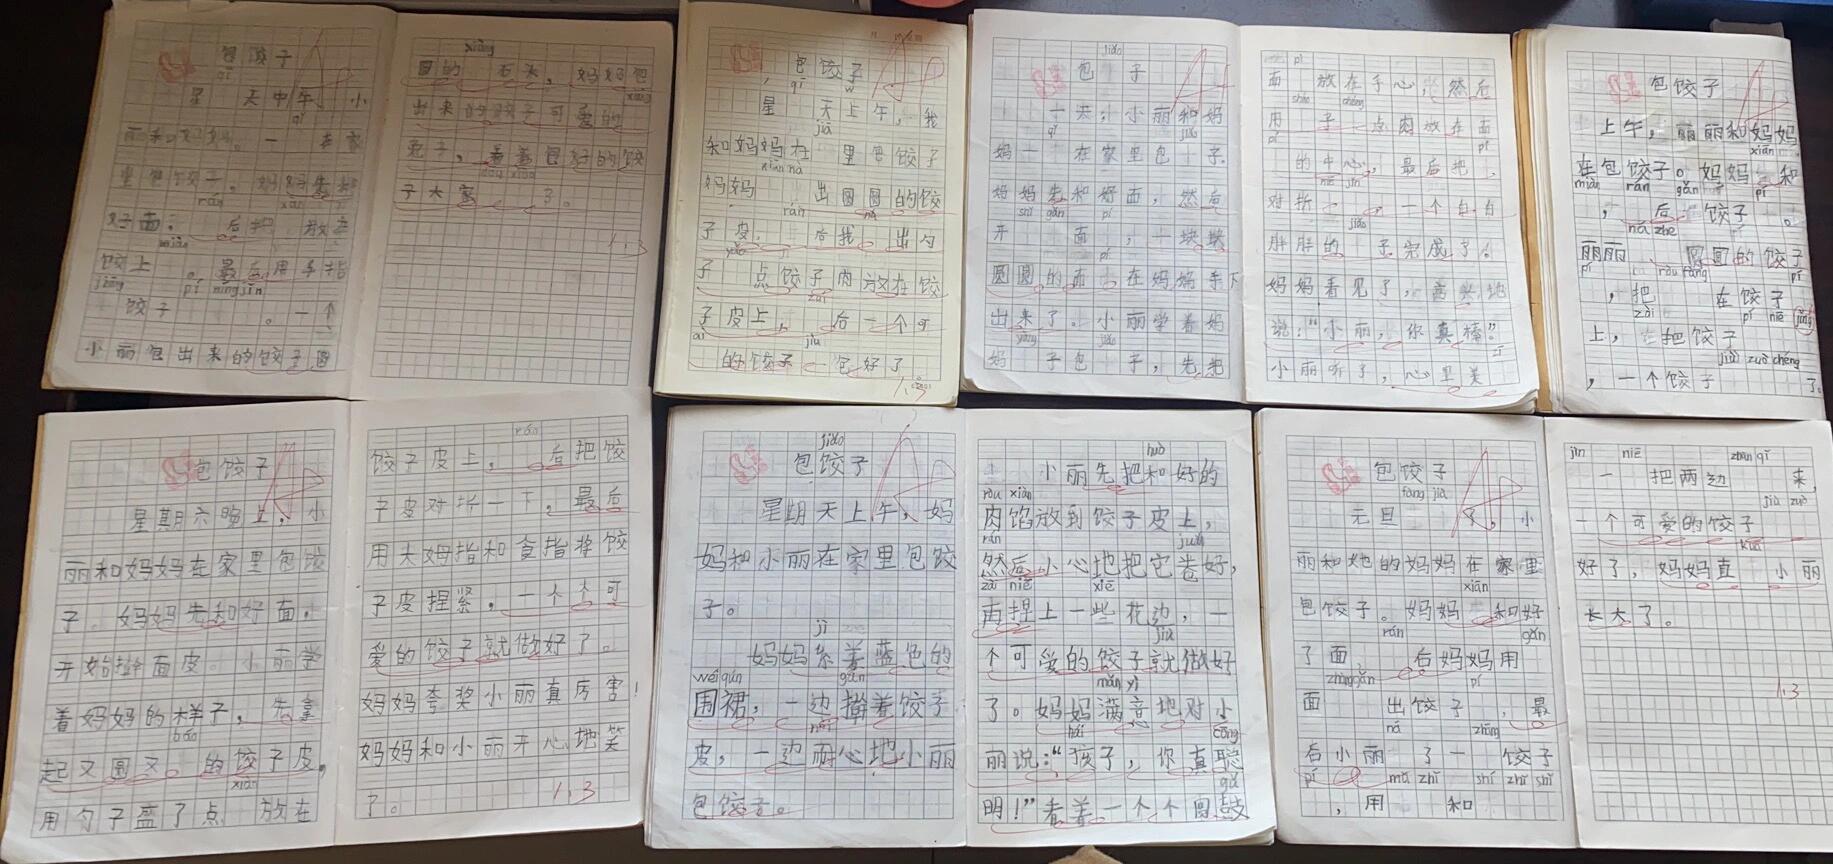 包饺子
qī
星 天中午 小
qī
丽和妈妈。一 在家
里包饺子。妈妈先和
rán
好面。 后把 放在
饺上 。最后用手指
pí níng jǐn
饺子 。一个
小丽包出来的饺子圆
xiàng
圆的 石头，妈妈包
出来的饺子可爱的
兔子，看着包好的饺
子大 了。
1.3
包饺子
qī w
星 天上午，我
jiā
和妈妈在 里包饺子
妈妈 出圆圆的饺
rán ná
子皮， 后我 出勺
子 点饺子肉放在饺
zuì
子皮上， 后一个可
ài jiù
的饺子 包好了
1.3
jiǎo
包 子
一天，小丽和妈
qī jiǎo
妈一 在家里包 子。
妈妈先和好面，然后
shǐ gǎn pí
开 面 ，一块块
pí
圆圆的面 在妈妈手下
出来了。小丽学着妈
yàng jiǎo
妈 子包 子，先把
pí
面 放在手心，然后
sháo chéng
用 子 点肉放在面
pí
的中心，最后把
niē jǐn
对折 ，一个白白
jiǎo
胖胖的 子完成了。
妈妈看见了，高兴地
说：“小丽，你真棒”
小丽听了，心里美
包饺子
上午，丽丽和妈妈
xiān
在包饺子。妈妈 和
miàn rán gǎn pí
， 后 饺子 。
ná zhe
丽丽 圆圆的饺子
pí ròu fàng pí
，把 在饺子
zài pí niē jǐng
上， 把饺子
jiù zuò chéng
，一个饺子 了。
包饺子
星期六晚上，小
丽和妈妈在家里包饺
子 妈妈先和好面。
开始擀面皮。小丽学
着妈妈的样子，先拿
báo
起又圆又 的饺子皮，
xiàn
用勺子盛了点 放在
rán
饺子皮上， 后把饺
子皮对折一下，最后
用大姆指和食指将饺
子皮捏紧，一个个可
爱的饺子就做好了。
妈妈夸奖小丽真厉害！
妈妈和小丽开心地笑
了。 1.3
jiǎo
包饺子
星期天上午，妈
妈和小丽在家里包饺
子。
jì
妈妈系着蓝色的
wéi qún gǎn
围裙，一边擀着饺子
nài
皮，一边耐心地小丽
包饺子。
huò
小丽先把和好的
ròu xiàn
肉馅放到饺子皮上，
rán juǎn
然后小心地把它卷好，
zài niē xiē
再捏上一些花边，一
jiù
个可爱的饺子就做好
mǎn yì
了。妈妈满意地对小
hái cōng
丽说：“孩子，你真聪
gǔ
明！”看着一个个圆鼓
包饺子
fàng jià
元旦 ，小
丽和她的妈妈在家里
xiān
包饺子。妈妈 和好
rán gǎn
了面， 后妈妈用
pí
面 出饺子 ，最
ná zhāng
后小丽 了一 饺子
pí mǔ zhǐ shí zhǐ shǐ
，用 和
jìn niē zhān qǐ
一 把两边 来，
jiù zuò
一个可爱的饺子
kuā
好了，妈妈直 小丽
长大了。
1.3